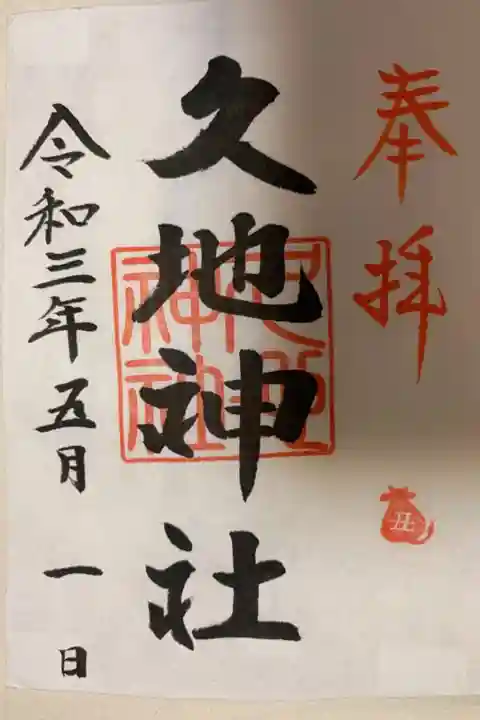 奉拝
丑
久地神社
久地神社
令和三年五月一日